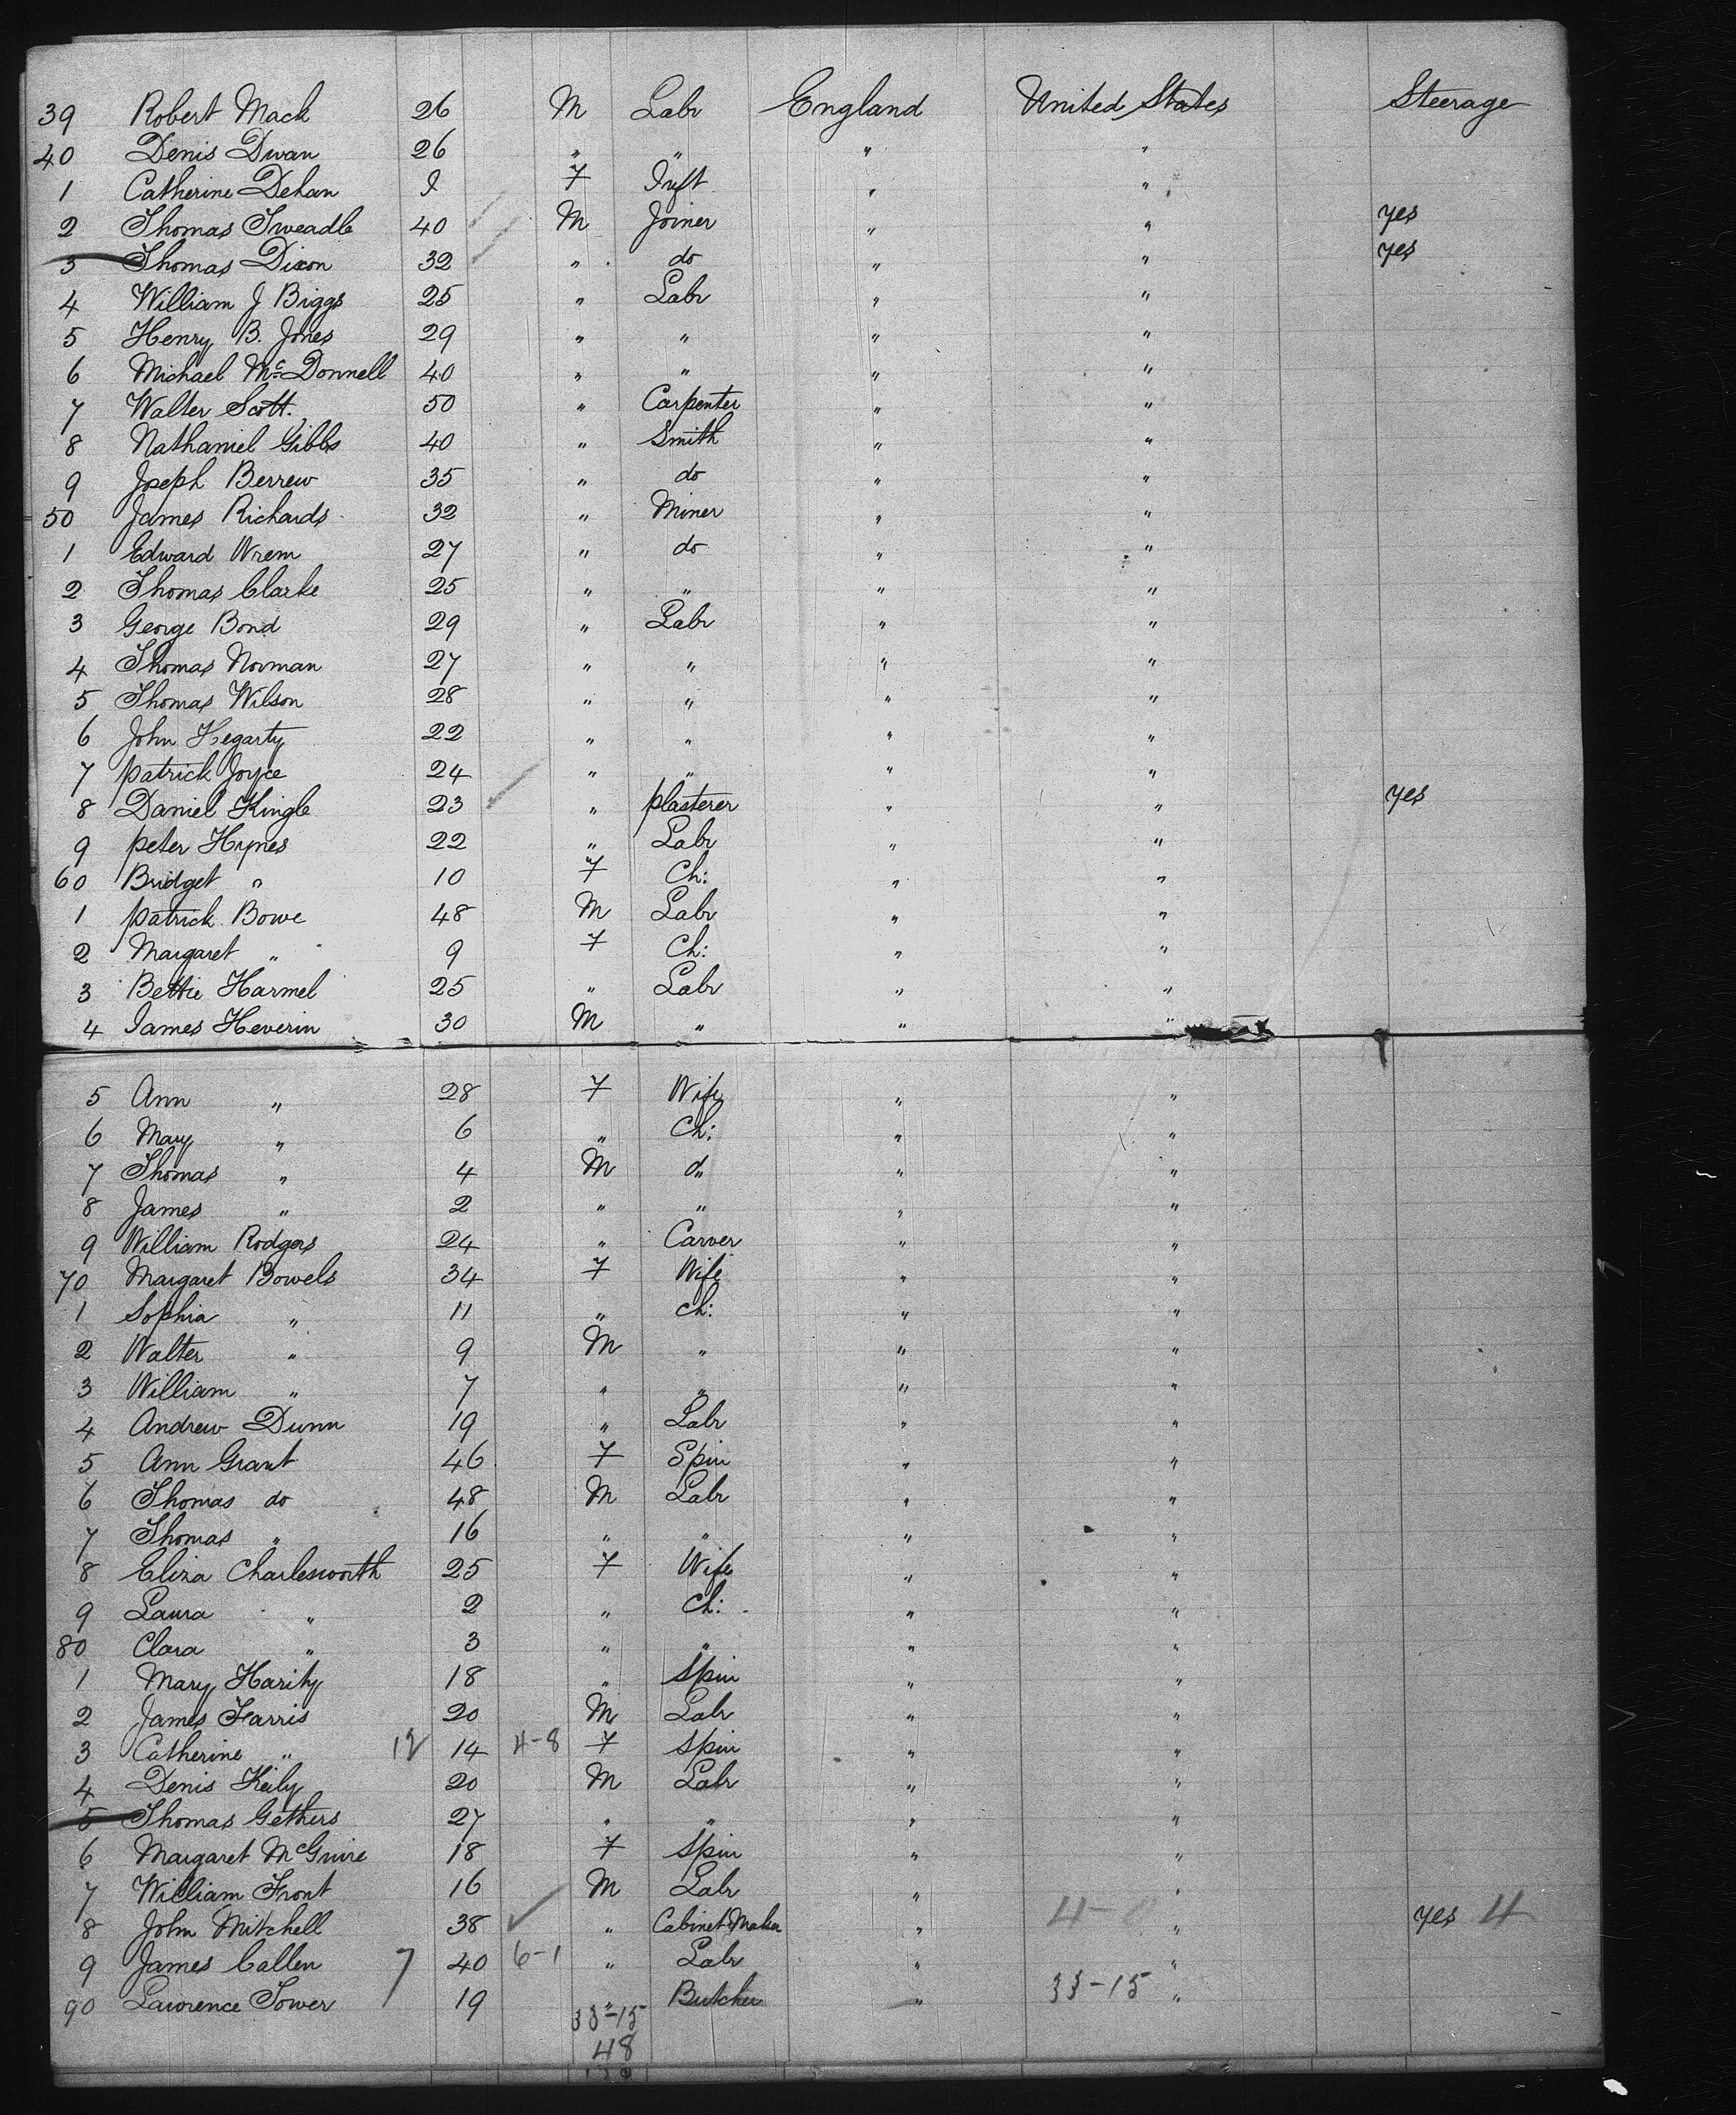 39 Robert Mack 26 M Labr England United States Steerage
40 Denis Dwan 26 " " " "
1 Catherine Dehan I F Inft " "
2 Thomas Tweadle 40 M Joiner " " yes
3 Thomas Dixon 32 " do " " yes
4 William J Biggs 25 " Labr " "
5 Henry B. Jones 29 " " " "
6 Michael McDonnell 40 " " " "
7 Walter Scott. 50 " Carpenter " "
8 Nathaniel Gibbs 40 " Smith " "
9 Joseph Berrew 35 " do " "
50 James Richards 32 " Miner " "
1 Edward Wrem 27 " do " "
2 Thomas Clarke 25 " " " "
3 George Bond 29 " Labr " "
4 Thomas Norman 27 " " " "
5 Thomas Wilson 28 " " " "
6 John Hegarty 22 " " " "
7 Patrick Joyce 24 " " " "
8 Daniel Kingle 23 " plasterer " " yes
9 Peter Hynes 22 " Labr " "
60 Bridget " 10 F Ch: " "
1 Patrick Bowe 48 M Labr " "
2 Margaret " 9 F Ch: " "
3 Bettie Harmel 25 " Labr " "
4 James Heverin 30 M " " "
5 Ann " 28 F Wife " "
6 Mary " 6 " Ch: " "
7 Thomas " 4 M do " "
8 James " 2 " " " "
9 William Rodgers 24 " Carver " "
70 Margaret Bowels 34 F Wife " "
1 Sophia " 11 " Ch: " "
2 Walter " 9 M " " "
3 William " 7 " " " "
4 Andrew Dunn 19 " Labr " "
5 Ann Grant 46 F Spin " "
6 Thomas do 48 M Labr " "
7 Thomas " 16 " " " "
8 Eliza Charlesworth 25 F Wife " "
9 Laura " 2 " Ch: " "
80 Clara " 3 " " " "
1 Mary Harity 18 " Spin " "
2 James Farris 20 M Labr " "
3 Catherine " 12 14 4-8 F Spin " "
4 Denis Keily 20 M Labr " "
5 Thomas Gethers 27 " " " "
6 Margaret McGuire 18 F Spin " "
7 William Front 16 M Labr " "
8 John Mitchell 38 " Cabinet Maker " 4- " yes 4
9 James Callen 7 40 6-1 " Labr " "
90 Lawrence Tower 19 " Butcher " 33-15 "
33-15
48